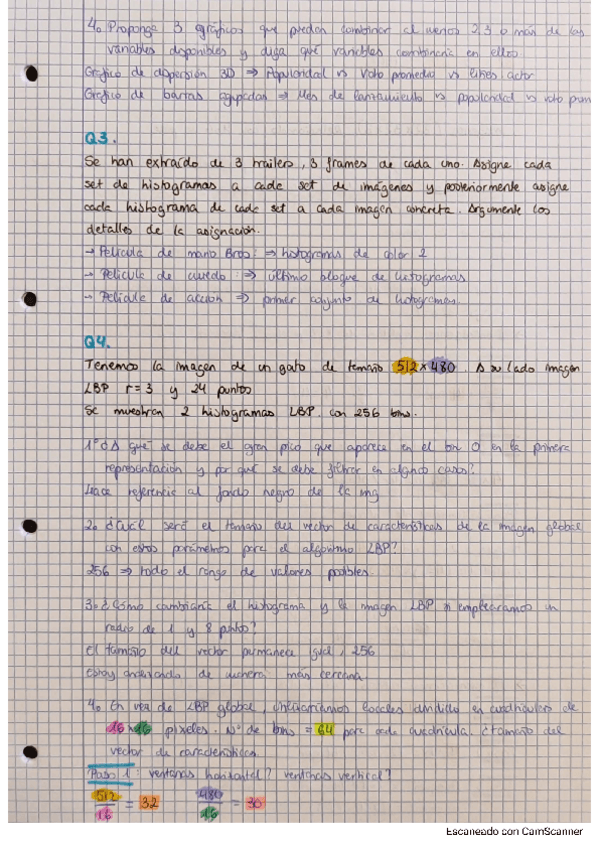 4. Proponga 3 gráficos que puedan combinar al menos 2, 3 o más de las
variables disponibles y diga qué variables combinaría en ellos
Gráfico de dispersión 3D => Popularidad vs Voto promedio vs likes actor
Gráfico de barras agupadas => Mes de lanzamiento vs popularidad vs voto prom
Q3.
Se han extraído de 3 trailers, 3 frames de cada uno. Asigne cada
set de histogramas a cada set de imágenes y posteriormente asigne
cada histograma de cada set a cada imagen concreta. Argumente los
detalles de la asignación.
→ Película de mario Bros: => histogramas de color 2
→ Película de => último bloque de histogramas
→ Película de acción => primer conjunto de histogramas.
Q4.
Tenemos la imagen de un gato de tamaño 512x480. A su lado imagen
LBP r=3 y 24 puntos
Se muestran 2 histogramas LBP con 256 bins.
1. ¿A qué se debe el gran pico que aparece en el bin 0 en la primera
representación y por qué se debe filtrar en algunos casos?
Hace referencia al fondo negro de la img
2. ¿Cuál será el tamaño del vector de características de la imagen global
con estos parámetros para el algoritmo LBP?
256 => todo el rango de valores posibles.
3. ¿Cómo cambiaría el histograma y la imagen LBP si empleáramos un
radio de 1 y 8 puntos?
el tamaño del vector permanece igual, 256
estoy analizando de manera más cercana
4. En vez de LBP global, locales en cuadrículas de
16x16 píxeles. Nº de bins = 64 para cada cuadrícula. ¿tamaño del
vector de características.
Paso 1: ventanas horizontal? ventanas vertical?
512/16 = 32 480/16 = 30
Escaneado con CamScanner